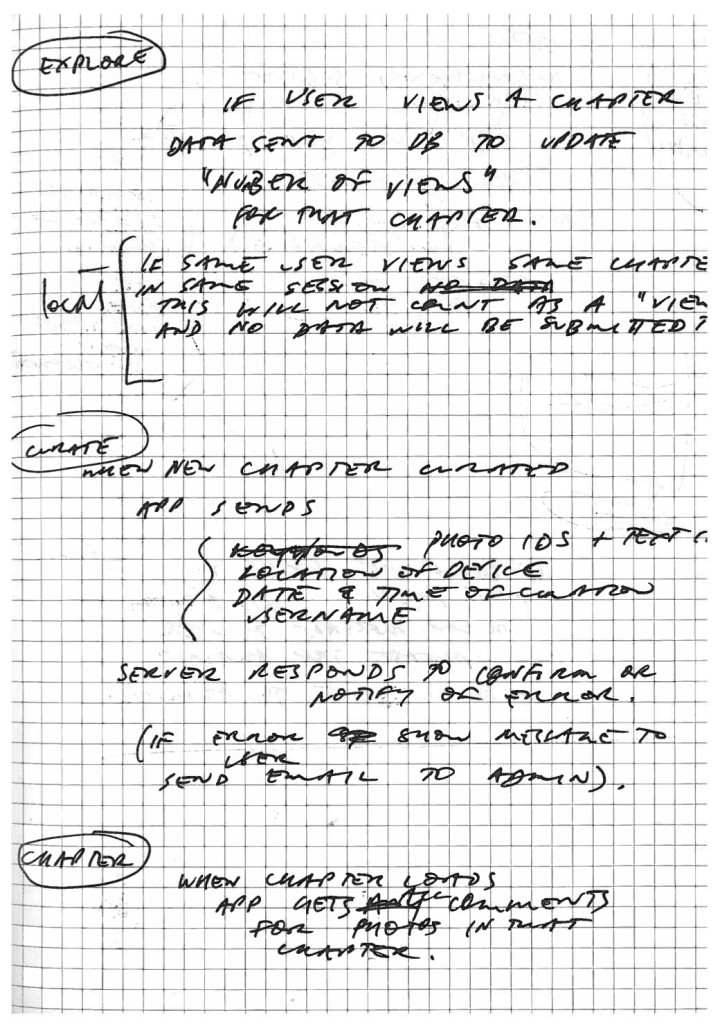 EXPLORE
IF USER VIEWS A CHAPTER
DATA SENT TO DB TO UPDATE
"NUMBER OF VIEWS"
FOR THAT CHAPTER.
local
IF SAME USER VIEWS SAME CHAPTE
IN SAME SESSION NO DATA
THIS WILL NOT COUNT AS A "VIEW
AND NO DATA WILL BE SUBMITTED
CURATE
WHEN NEW CHAPTER CURATED
APP SENDS
KEYWORDS PHOTO IDS + TEXT
LOCATION OF DEVICE
DATE & TIME OF CURATION
USERNAME
SERVER RESPONDS TO CONFIRM OR
NOTIFY OF ERROR.
(IF ERROR SHOW MESSAGE TO
USER
SEND EMAIL TO ADMIN).
CHAPTER
WHEN CHAPTER LOADS
APP GETS COMMENTS
FOR PHOTOS IN THAT
CHAPTER.